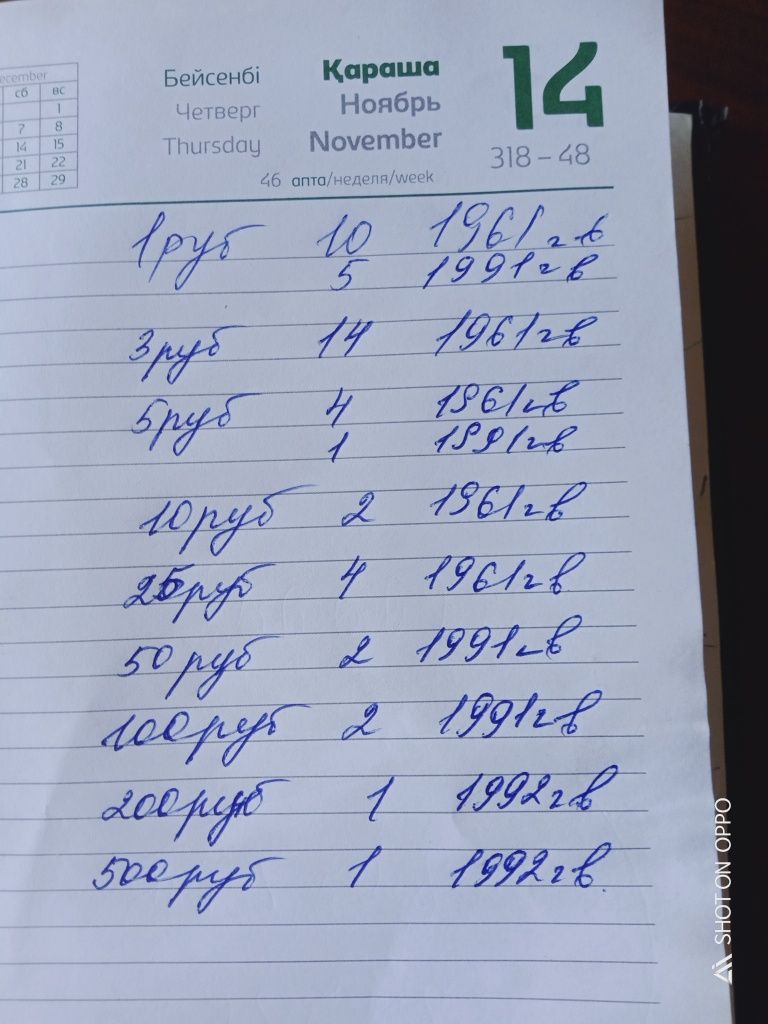 ecember
сб вс
1
7 8
14 15
21 22
28 29
Бейсенбі Қараша 14
Четверг Ноябрь
Thursday November 318 – 48
46 апта/неделя/week
1 руб 10 1961 г в
5 1991 г в
3 руб 14 1961 г в
5 руб 4 1961 г в
1 1991 г в
10 руб 2 1961 г в
25 руб 4 1961 г в
50 руб 2 1991 г в
100 руб 2 1991 г в
200 руб 1 1992 г в
500 руб 1 1992 г в.
SHOT ON OPPO